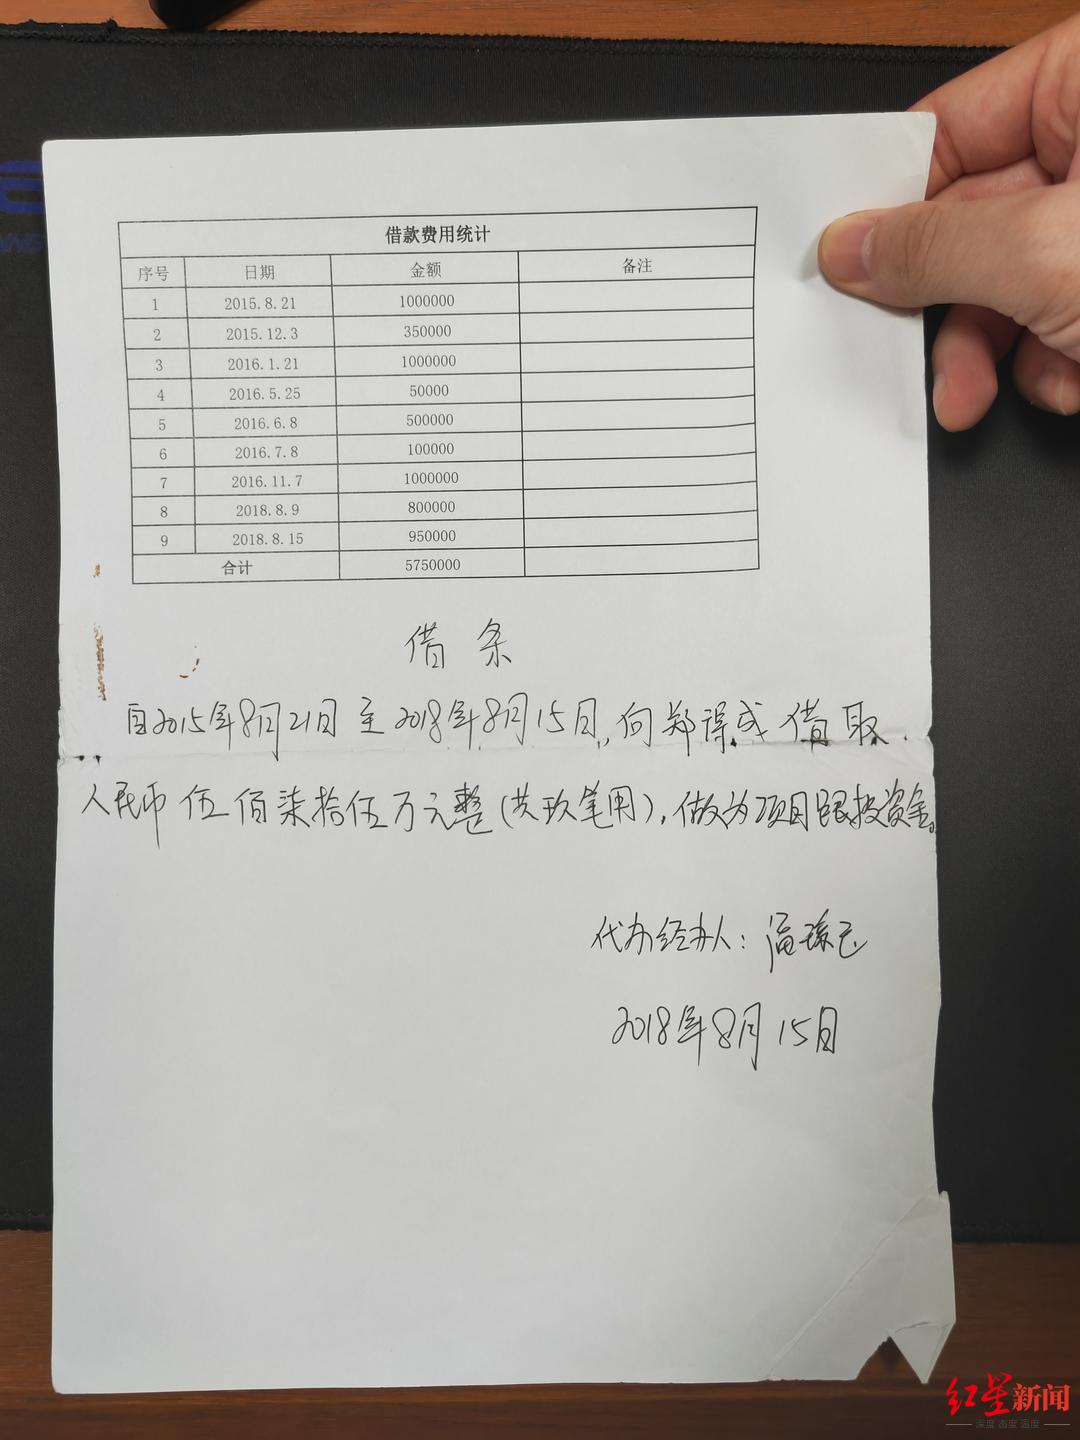 借款费用统计
序号 日期 金额 备注
1 2015.8.21 1000000
2 2015.12.3 350000
3 2016.1.21 1000000
4 2016.5.25 50000
5 2016.6.8 500000
6 2016.7.8 100000
7 2016.11.7 1000000
8 2018.8.9 800000
9 2018.8.15 950000
合计 5750000
借条
自2015年8月21日至2018年8月15日,向郑得成借取
人民币伍佰柒拾伍万元整(共玖笔用),做为项目跟投资金。
代办经办人:
2018年8月15日
红星新闻
深度 态度 温度